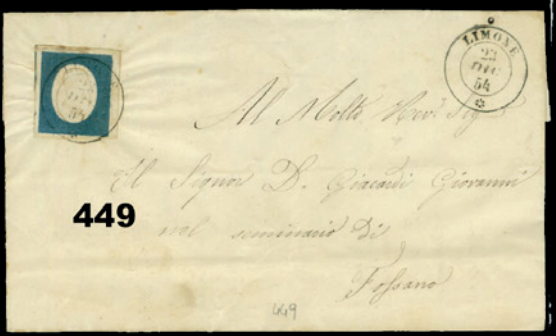 LIMONE
23
DIC
54
Al Molto Rev. Sig.
Il Signor D. Giacardi Giovanni
449
nel seminario di
Fossano
449